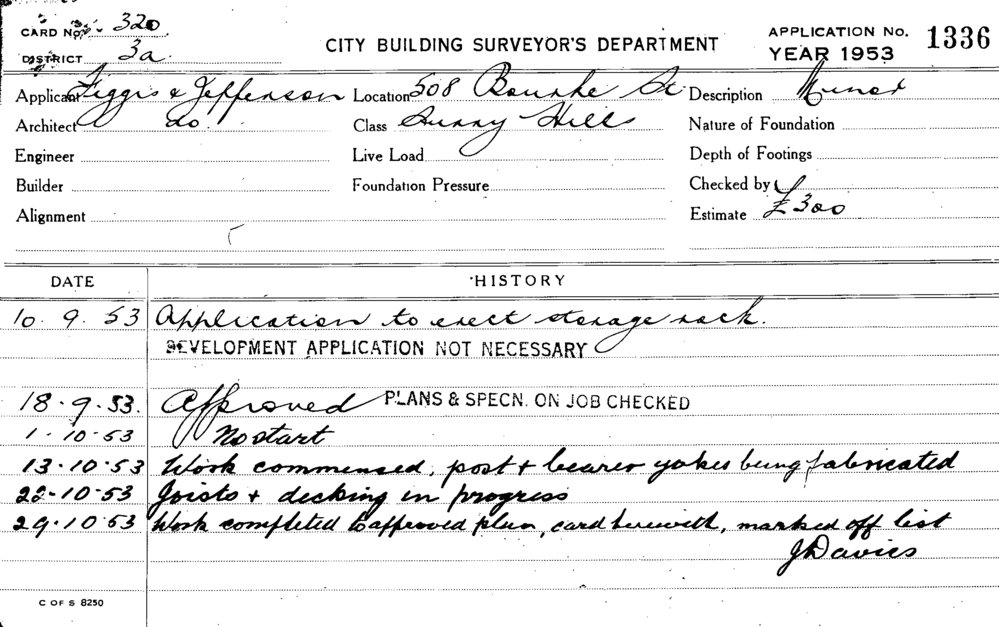 CARD No. 320
DISTRICT 3a
CITY BUILDING SURVEYOR'S DEPARTMENT
APPLICATION No. 1336
YEAR 1953
Applicant Figgis & Jefferson Location 508 Bourke St. Description Minor
Architect do. Class Surry Hills Nature of Foundation
Engineer Live Load Depth of Footings
Builder Foundation Pressure Checked by
Alignment Estimate £300
DATE HISTORY
10. 9. 53 Application to erect storage rack.
DEVELOPMENT APPLICATION NOT NECESSARY
18. 9. 53. Approved PLANS & SPECN. ON JOB CHECKED
1. 10. 53 No start
13. 10. 53 Work commensed, post & bearer yokes being fabricated
22. 10. 53 Joists & decking in progress
29. 10. 53 Work completed to approved plan, card herewith, marked off list
J Davies
C OF S 8250